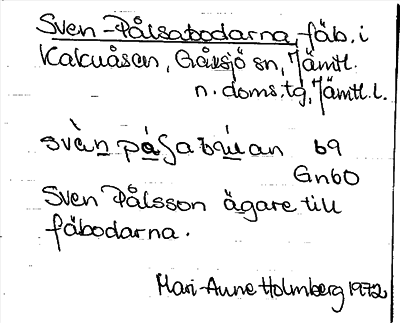 Sven-Pålsabodarna, fäb. i
Kalcuåsen, Gåxsjö sn, Jämtl.
n. doms.tg, Jämtl. l.
svèn på̀ʃabúan b9
Gn60
Sven Pålsson ägare till
fäbodarna.
Mari-Anne Holmberg 1972